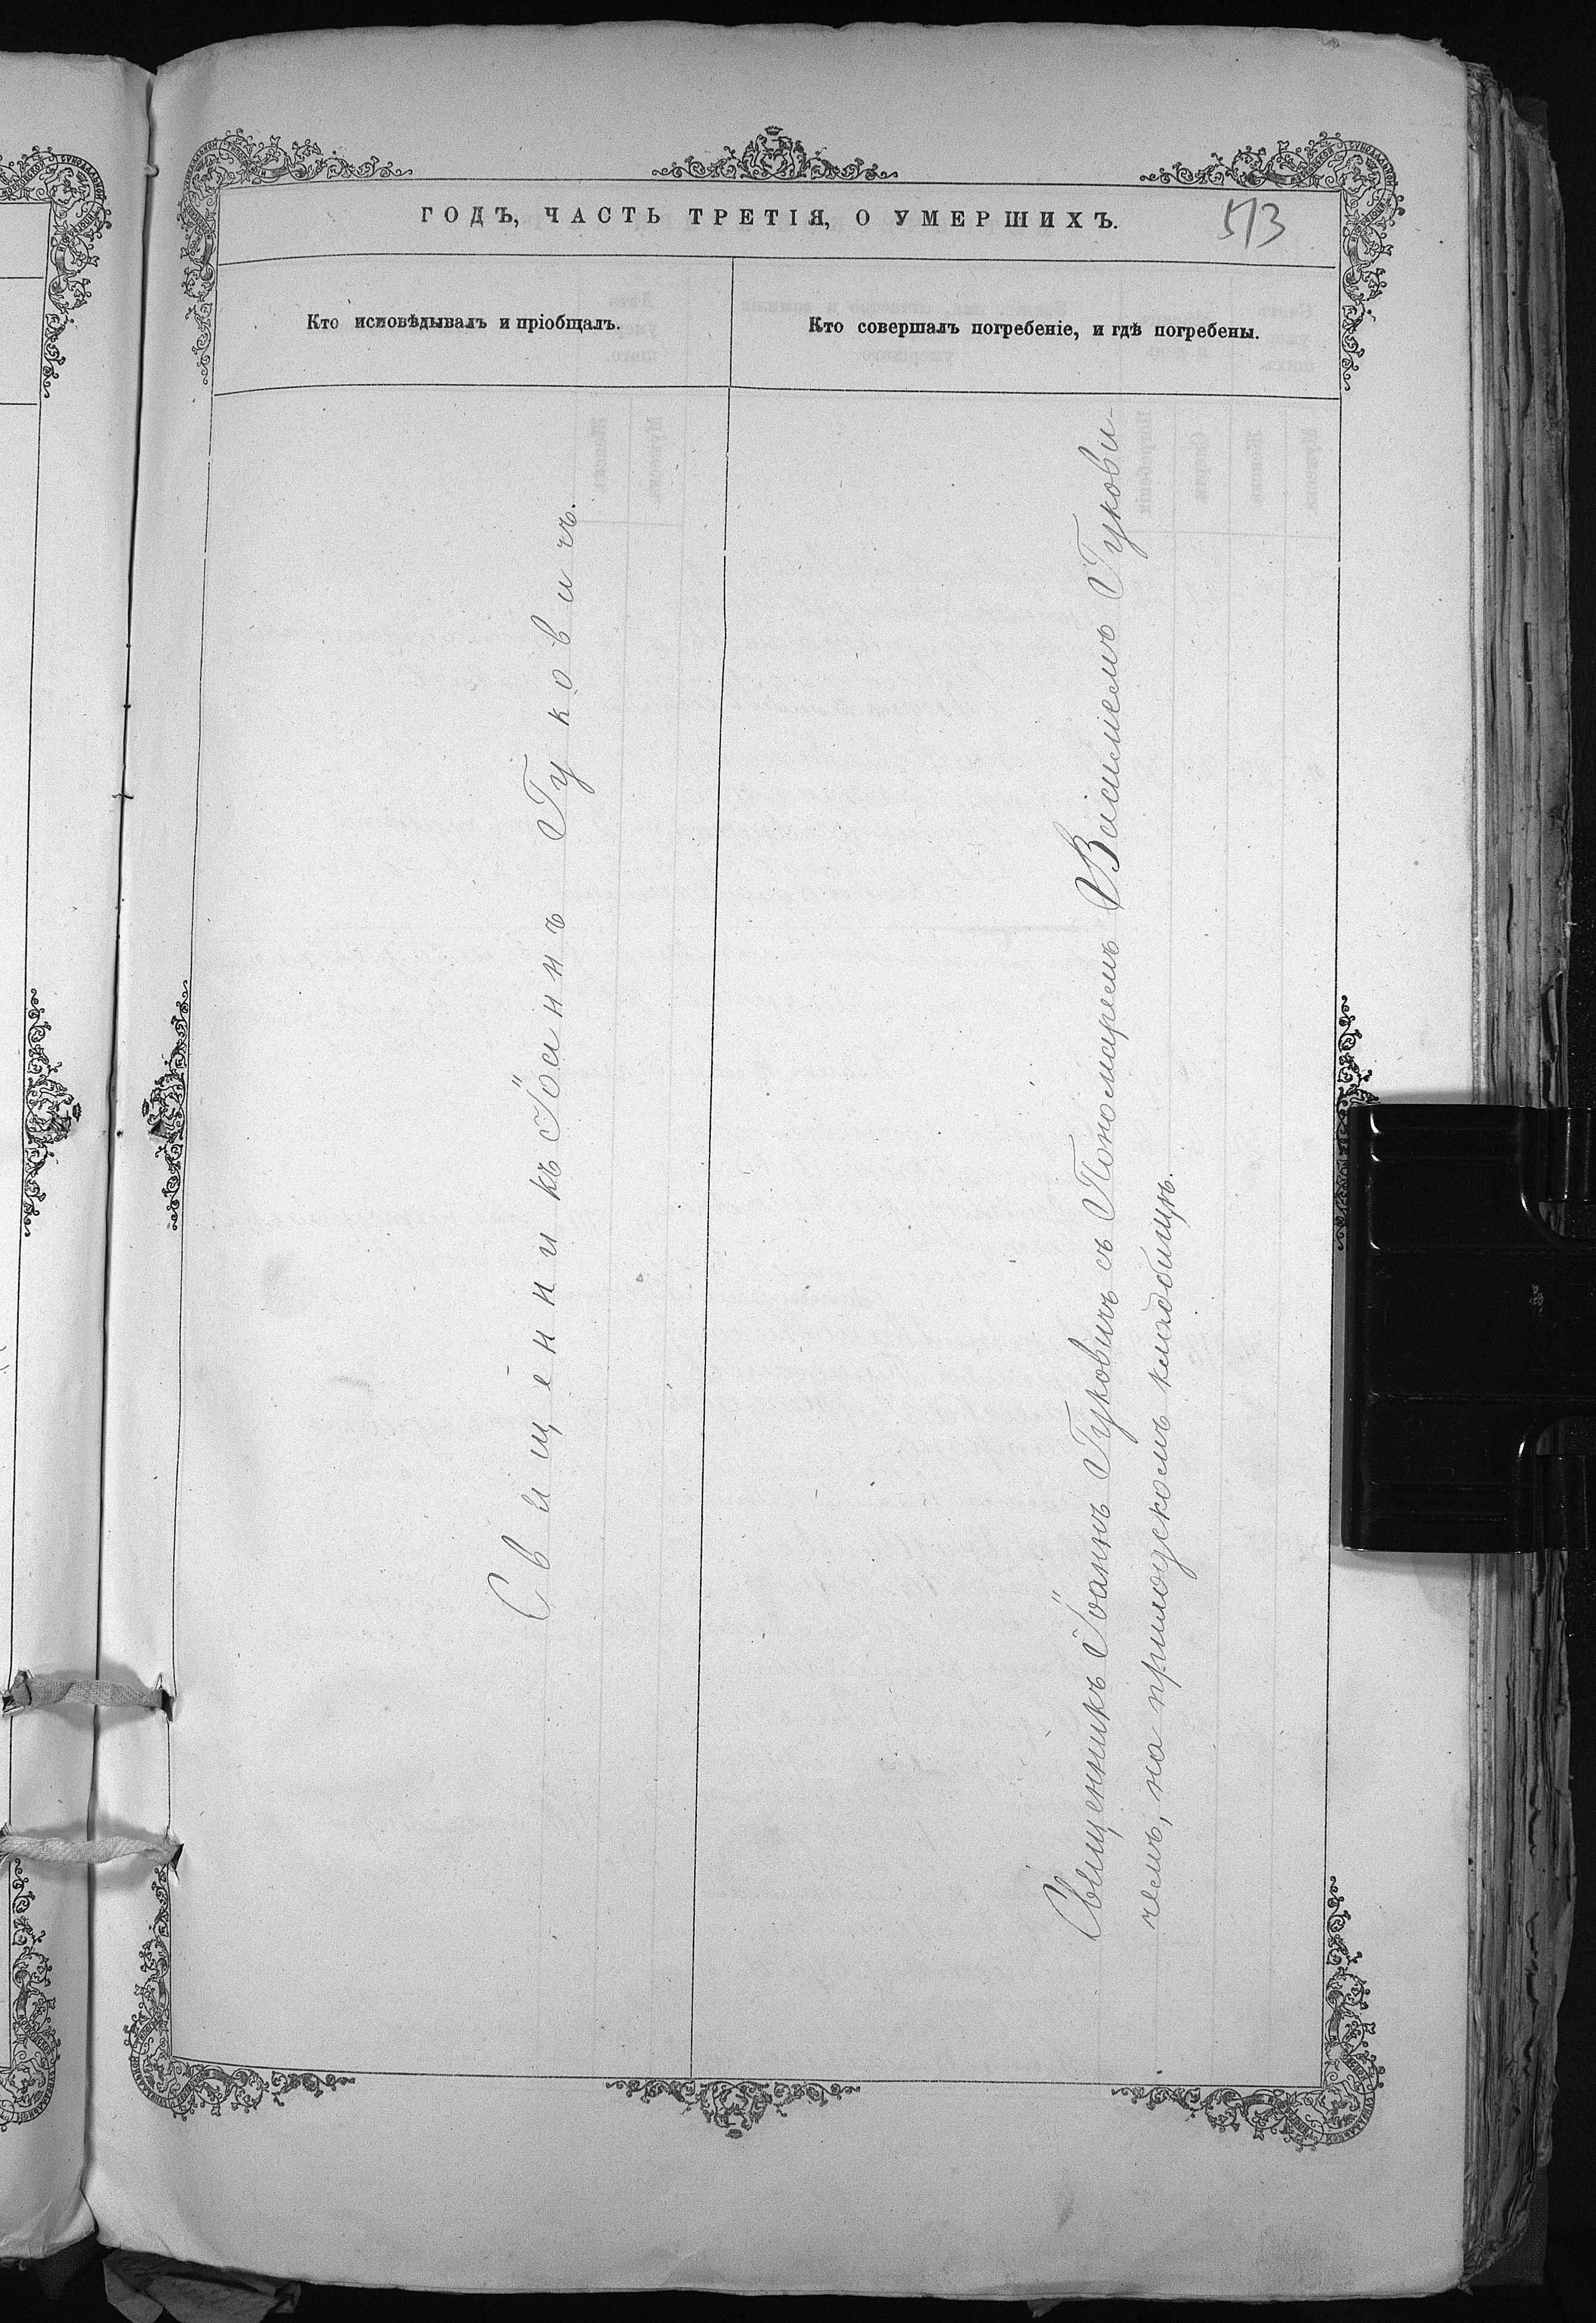 ГОДЪ, ЧАСТЬ ТРЕТІЯ, О УМЕРШИХЪ.
513
Кто исповѣдывалъ и пріобщалъ.
Кто совершалъ погребеніе, и гдѣ погребены.
Священникъ Іоаннъ Гуковичъ.
Священникъ Іоаннъ Гуковичъ съ Пономаремъ Василіемъ Гукови-
чемъ, на приходскомъ кладбищѣ.